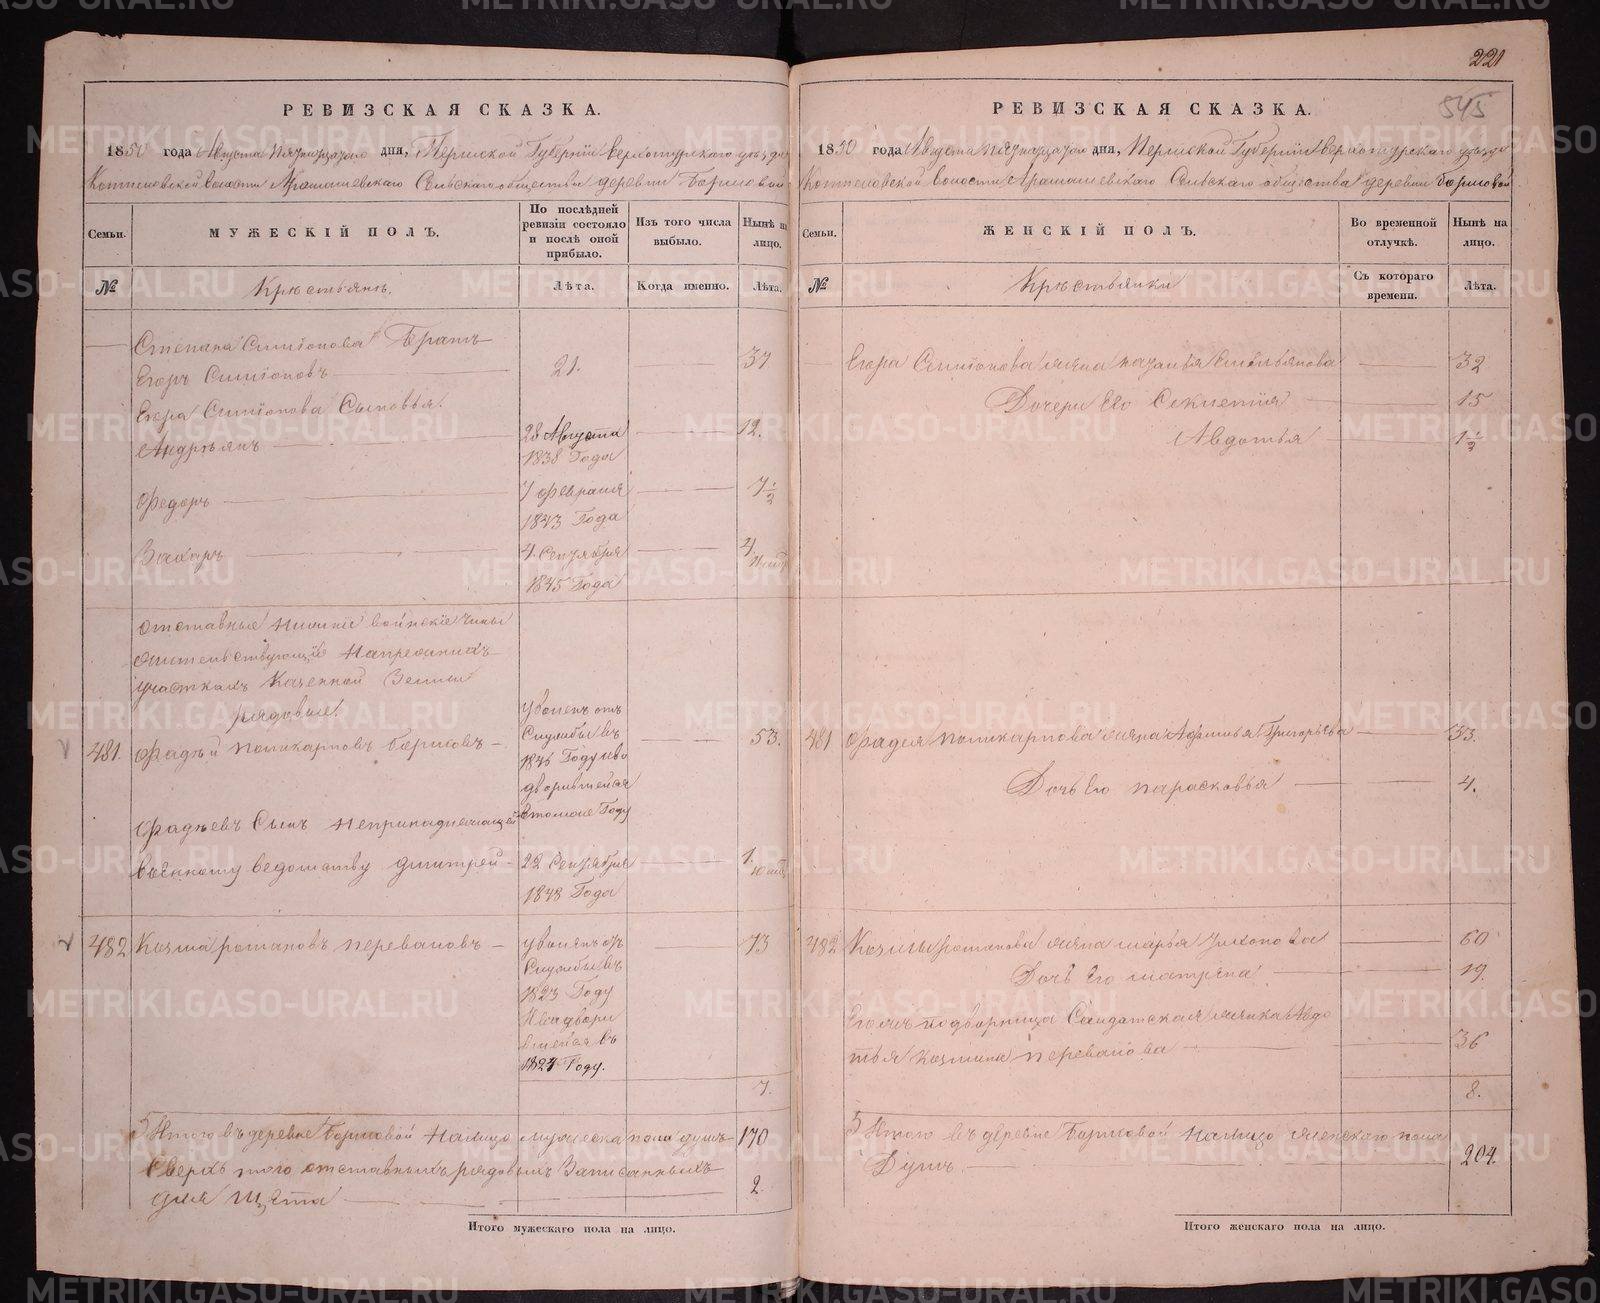 221
545
РЕВИЗСКАЯ СКАЗКА.
1850 года Августа пятнадцатого дня, Пермской Губернии Верхотурского уезда
Коптеловской волости Арамашевскаго Сельскаго общества деревни Бориловой
Семьи.
МУЖЕСКІЙ ПОЛЪ.
По послѣдней ревизіи состояло и послѣ оной прибыло.
Изъ того числа выбыло.
Нынѣ на лицо.
№
Крестьянъ.
Лѣта.
Когда именно.
Лѣта.
Степана Симіонова Братъ
Егоръ Симіоновъ 21. 37
Егора Симіонова Сыновья.
Андреянъ 28 Августа 1838 Года 12.
Федоръ 7 февраля 1843 Года 7 1/2
Захаръ 4 Сентября 1845 Года 4
отставные нижніе воинскіе чины
жительствующіе
участкахъ Казенной Земли
рядовые.
481. Фадѣй Поликарповъ 53.
уволенъ отъ
Службы въ
1846 Году
томже Году
Фадѣевъ Сынъ непринадлежащей
военному ведомству Дмитрей 22 Сентября 1848 Года 1.
482 Козма романовъ переваловъ 73
уволенъ отъ
Службы въ
1823 Году
1824 Году.
7.
Итого въ деревне Бориловой налицо мужеска пола душъ 170
Сверхъ того отставныхъ рядовыхъ Записанныхъ
для щета 2.
Итого мужескаго пола на лицо.
РЕВИЗСКАЯ СКАЗКА.
1850 года Августа пятнадцатого дня, Пермской Губернии Верхотурскаго уезда
Коптеловской волости Арамашевскаго Сельскаго общества деревни Бориловой
Семьи.
ЖЕНСКІЙ ПОЛЪ.
Во временной отлучкѣ.
Нынѣ на лицо.
№
Крестьянки
Съ котораго времени.
Лѣта.
Егора Симіонова жена Наталья Емельянова 32
Дочери Его Секлетия 15
Авдотья 1 1/2
481 Фадея Поликарпова жена Афимья Григорьева 53.
Дочь Его парасковья 4.
482 Козмы романова жена марья 60
Дочь Его матрена 19.
Солдатская женка Авдо
тья перевалова 36
8.
Итого въ деревне Бориловой налицо женскаго пола
Душъ 204.
Итого женскаго пола на лицо.
METRIKI.GASO-URAL.RU